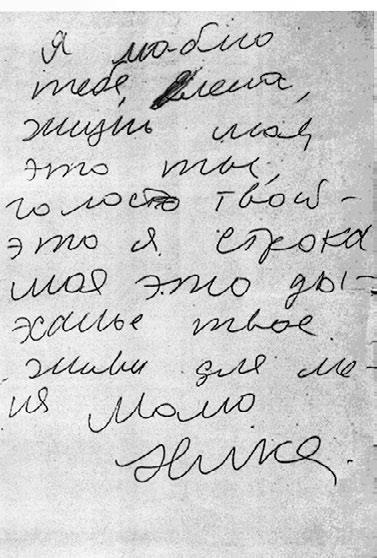 Я люблю
тебя, Алена,
жизнь моя,
это ты,
голос твой -
это я строка
моя это ды-
ханье твое
живи для ме-
ня Мама
Ника.